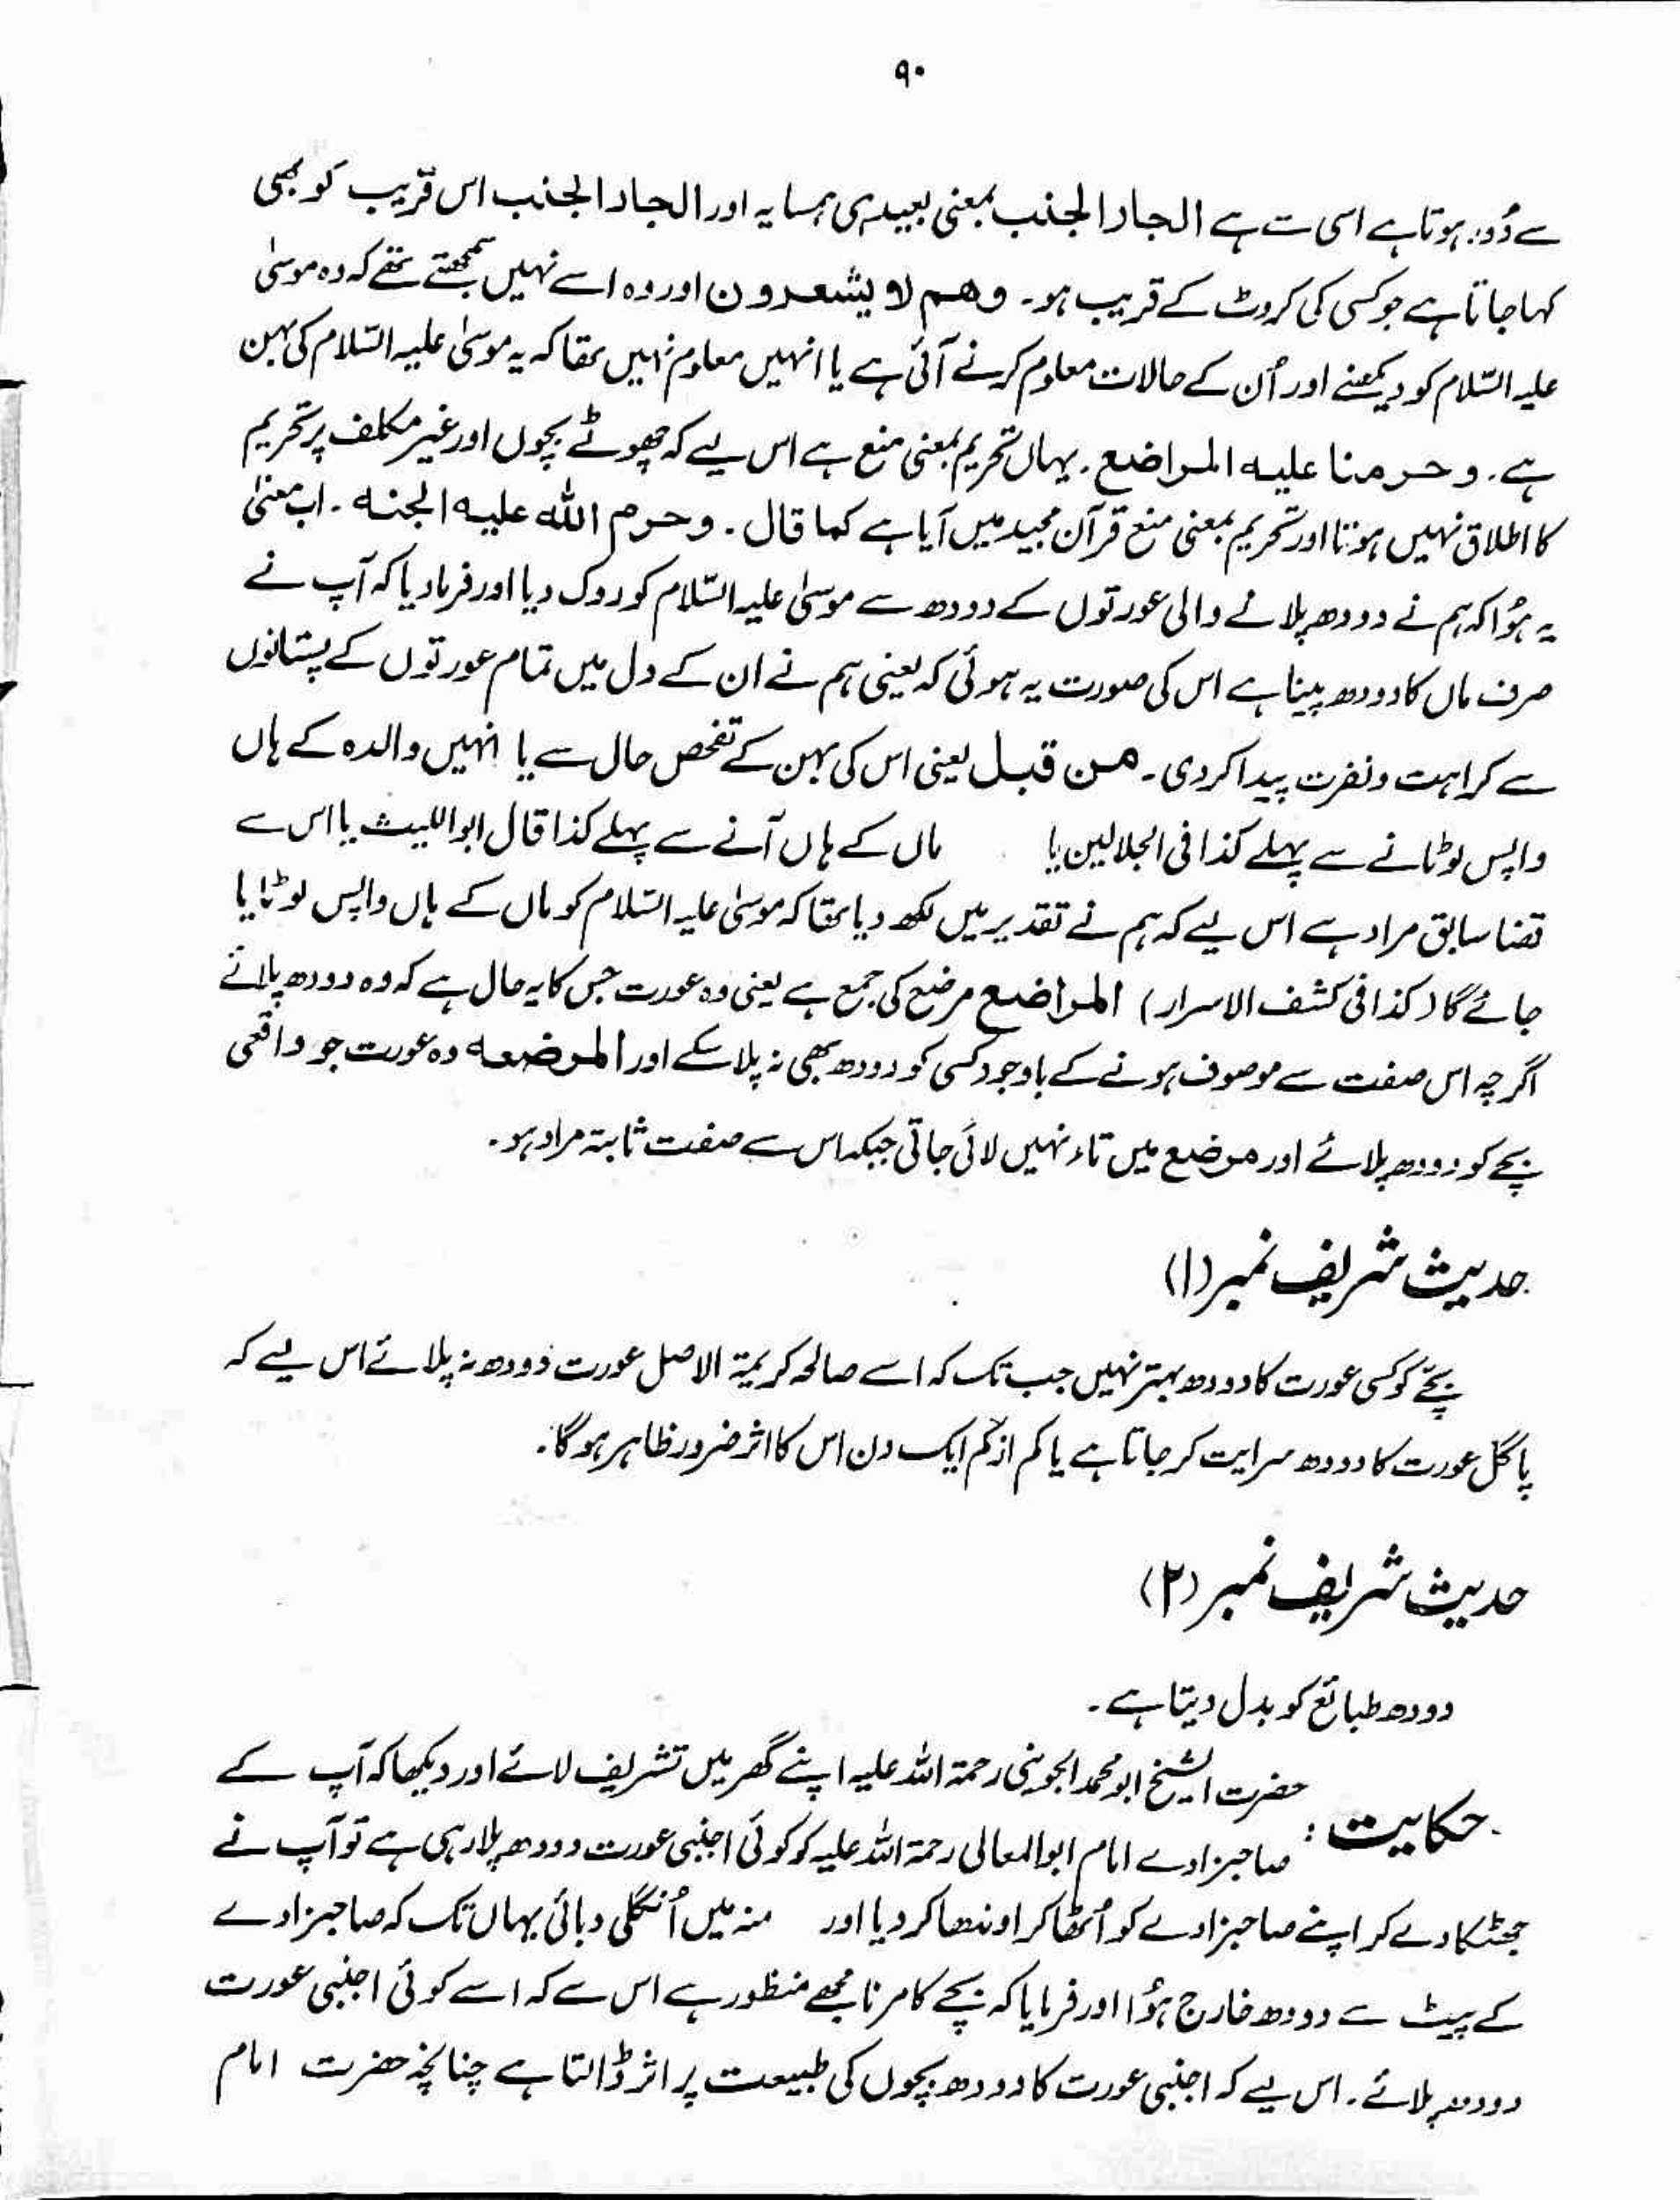 ۹۰
سے دُور ہوتا ہے اسی سے ہے الجار الجنب بمعنی بعیدی ہمسایہ اور الجار الجنب اس قریب کو بھی
کہا جاتا ہے جو کسی کی کروٹ کے قریب ہو۔ وھم لا یشعرون اور وہ اسے نہیں سمجھتے تھے کہ وہ موسیٰ
علیہ السّلام کو دیکھنے اور اُن کے حالات معلوم کرنے آئی ہے یا انہیں معلوم نہیں تھا کہ یہ موسیٰ علیہ السّلام کی بہن
ہے۔ وحرمنا علیہ المراضع۔ یہاں تحریم بمعنی منع ہے اس لیے کہ چھوٹے بچوں اور غیر مکلف پر تحریم
کا اطلاق نہیں ہوتا اور تحریم بمعنی منع قرآن مجید میں آیا ہے کما قال۔ وحرم اللہ علیہ الجنہ۔ اب معنیٰ
یہ ہُوا کہ ہم نے دودھ پلانے والی عورتوں کے دودھ سے موسیٰ علیہ السّلام کو روک دیا اور فرمادیا کہ آپ نے
صرف ماں کا دودھ پینا ہے اس کی صورت یہ ہوئی کہ یعنی ہم نے ان کے دل میں تمام عورتوں کے پستانوں
سے کراہت و نفرت پیدا کردی۔ من قبل یعنی اس کی بہن کے تفحص حال سے یا انہیں والدہ کے ہاں
واپس لوٹانے سے پہلے کذا فی الجلالین یا ماں کے ہاں آنے سے پہلے کذا قال ابواللیث یا اس سے
قضا سابق مراد ہے اس لیے کہ ہم نے تقدیر میں لکھ دیا تھا کہ موسیٰ علیہ السّلام کو ماں کے ہاں واپس لوٹایا
جائے گا (کذا فی کشف الاسرار) المراضع مرضع کی جمع ہے یعنی وہ عورت جس کا یہ حال ہے کہ وہ دودھ پلاتے
اگرچہ اس صفت سے موصوف ہونے کے باوجود کسی کو دودھ بھی نہ پلا سکے اور المرضعہ وہ عورت جو واقعی
بچے کو دودھ پلائے اور مرضع میں تاء نہیں لائی جاتی جبکہ اس سے صفت ثابتہ مراد ہو۔
حدیث شریف نمبر (۱)
بچّے کو کسی عورت کا دودھ بہتر نہیں جب تک کہ اسے صالحہ کریمۃ الاصل عورت دودھ نہ پلائے اس لیے کہ
پاگل عورت کا دودھ سرایت کر جاتا ہے یا کم از کم ایک دن اس کا اثر ضرور ظاہر ہوگا۔
حدیث شریف نمبر (۲)
دودھ طبائع کو بدل دیتا ہے۔
حکایت: حضرت الشیخ ابو محمد الجوینی رحمۃ اللہ علیہ اپنے گھر میں تشریف لائے اور دیکھا کہ آپ کے
صاحبزادے امام ابوالمعالی رحمۃ اللہ علیہ کو کوئی اجنبی عورت دودھ پلا رہی ہے تو آپ نے
جھٹکا دے کر اپنے صاحبزادے کو اُٹھا کر اوندھا کر دیا اور منہ میں اُنگلی دبائی یہاں تک کہ صاحبزادے
کے پیٹ سے دودھ خارج ہُوا اور فرمایا کہ بچے کا مرنا مجھے منظور ہے اس سے کہ اسے کوئی اجنبی عورت
دودھ پلائے۔ اس لیے کہ اجنبی عورت کا دودھ بچوں کی طبیعت پر اثر ڈالتا ہے چنانچہ حضرت امام